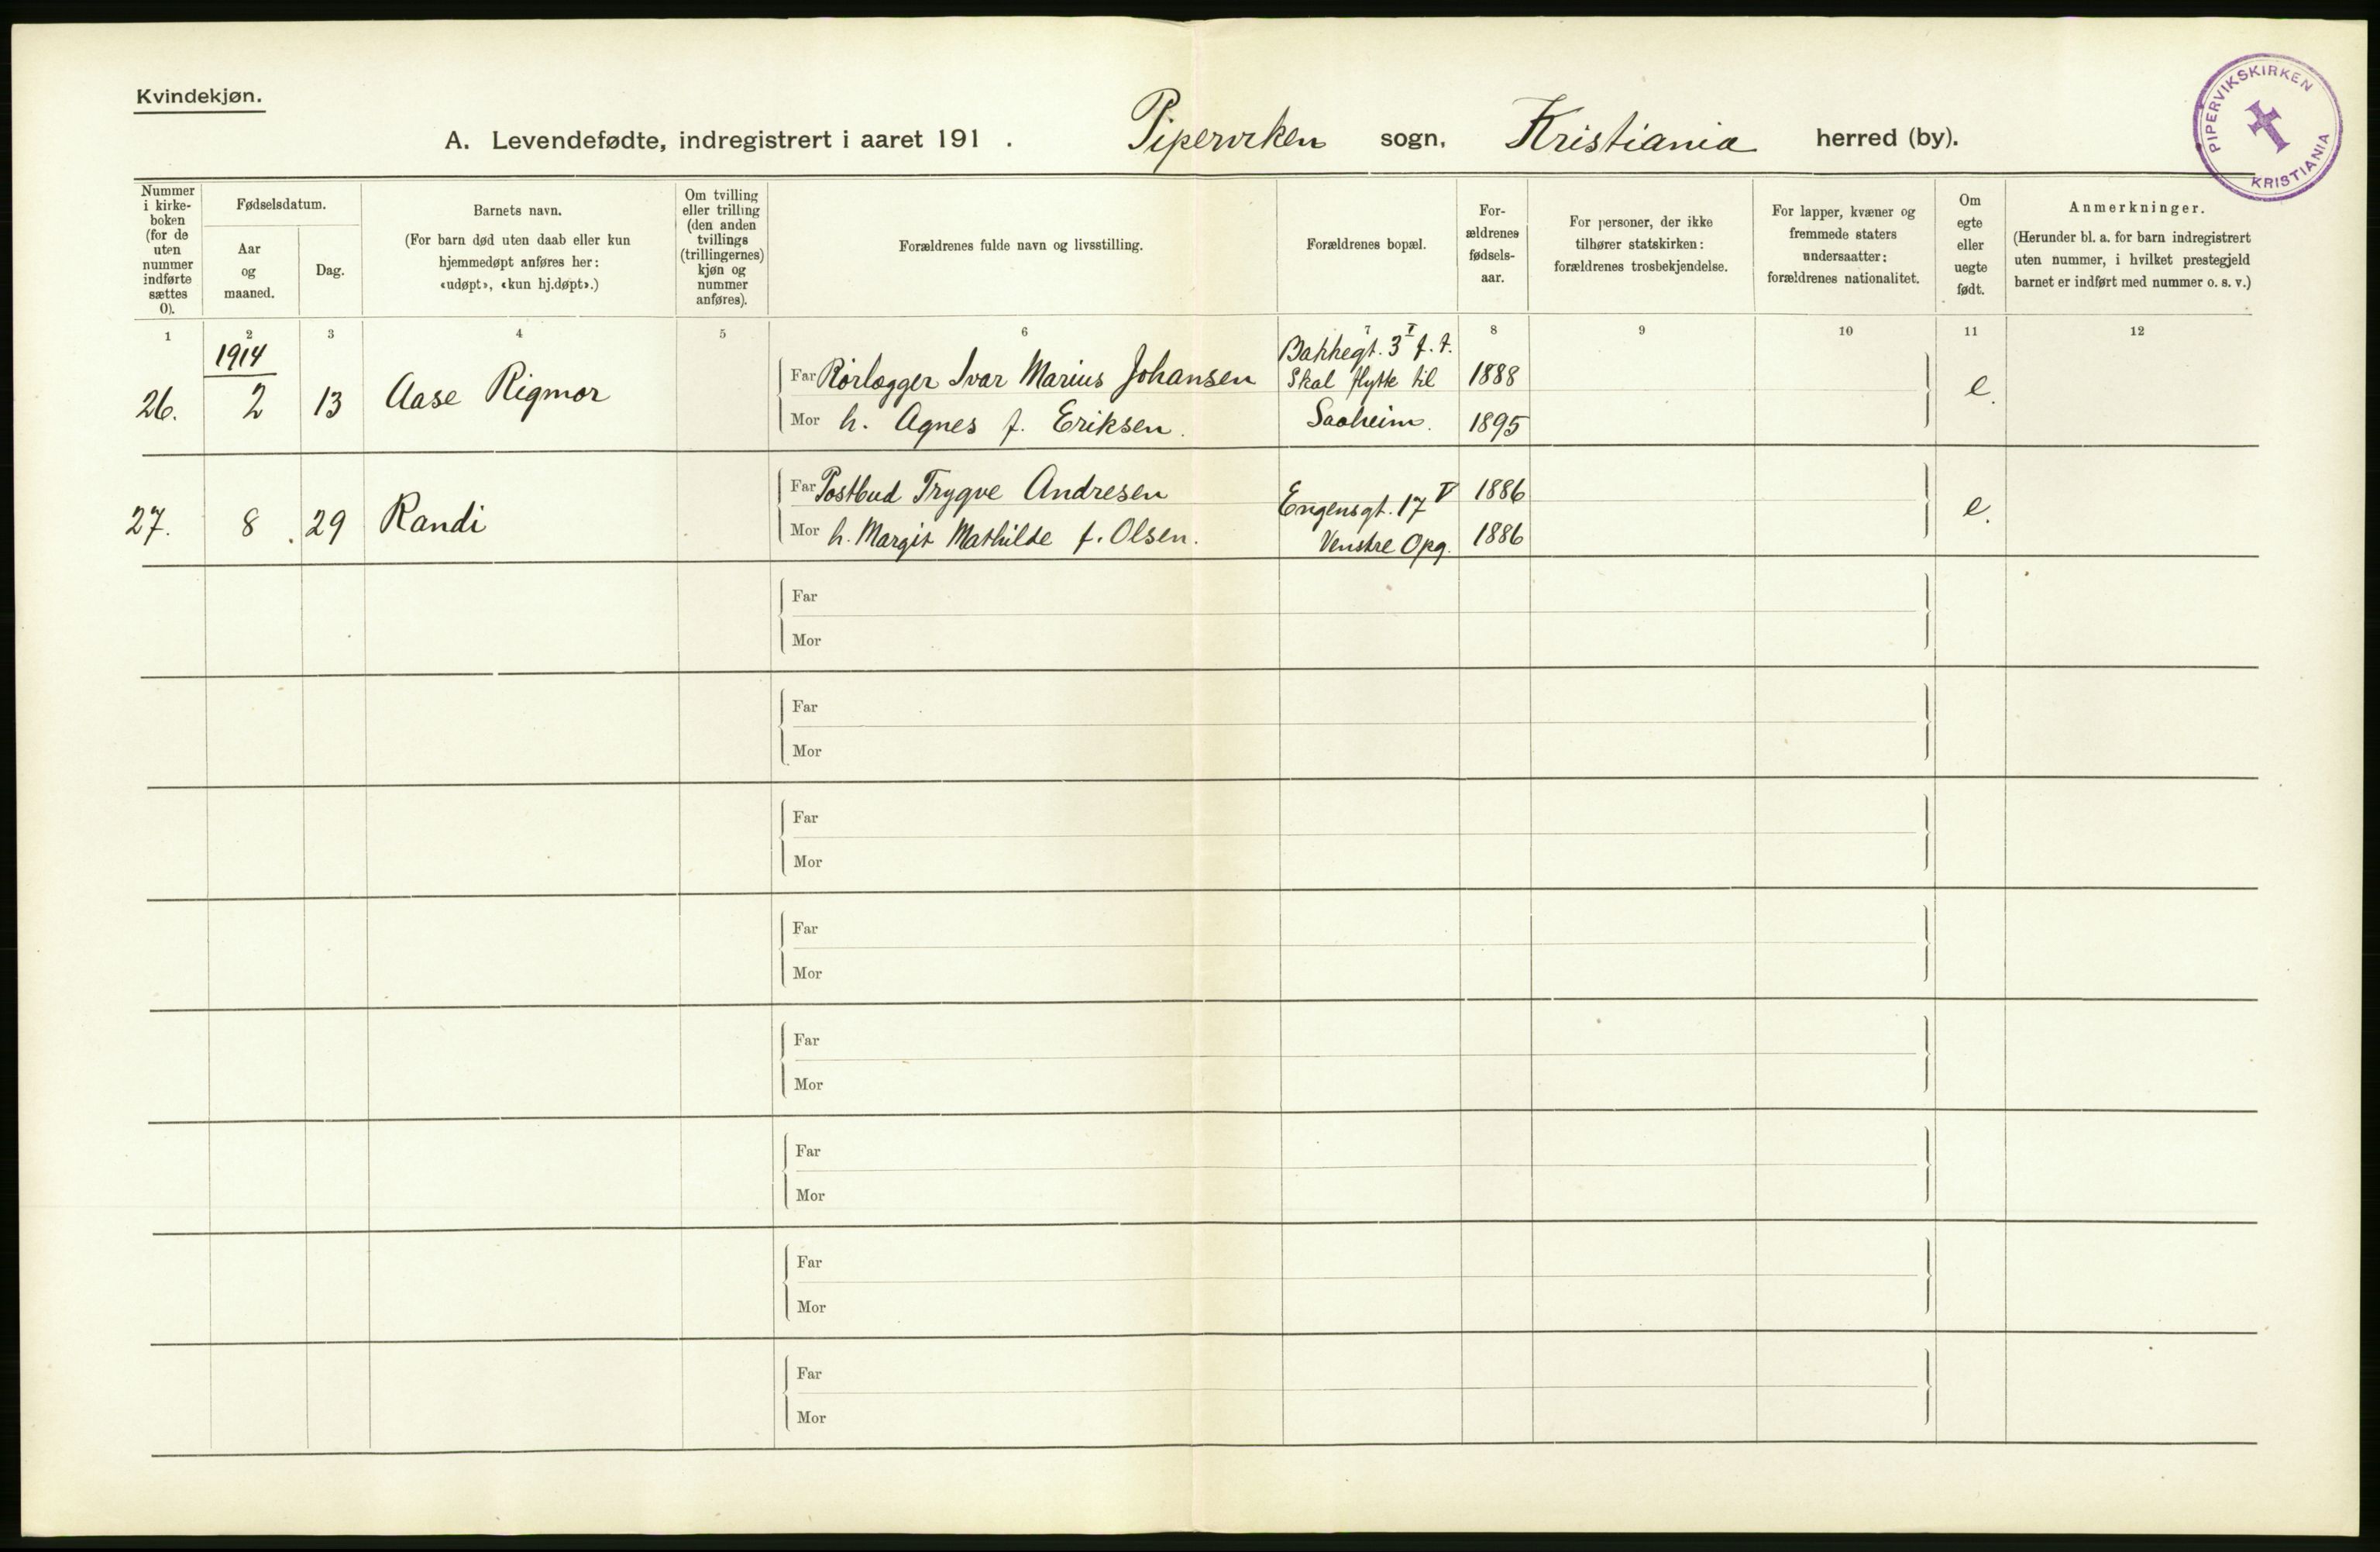 Kvindekjøn.
A. Levendefødte, indregistrert i aaret 191 . Piperviken sogn, Kristiania herred (by).
PIPERVIKSKIRKEN
KRISTIANIA
Nummer
i kirke-
boken
(for de
uten
nummer
indførte
sættes
0).
Fødselsdatum.
Aar
og
maaned.
Dag.
Barnets navn.
(For barn død uten daab eller kun
hjemmedøpt anføres her:
«udøpt», «kun hj.døpt».)
Om tvilling
eller trilling
(den anden
tvillings
(trillingernes)
kjøn og
nummer
anføres).
Forældrenes fulde navn og livsstilling.
Forældrenes bopæl.
For-
ældrenes
fødsels-
aar.
For personer, der ikke
tilhører statskirken:
forældrenes trosbekjendelse.
For lapper, kvæner og
fremmede staters
undersaatter:
forældrenes nationalitet.
Om
egte
eller
uegte
født.
Anmerkninger.
(Herunder bl. a. for barn indregistrert
uten nummer, i hvilket prestegjeld
barnet er indført med nummer o. s. v.)
1 2 3 4 5 6 7 8 9 10 11 12
1914
26. 2 13 Aase Rigmor
Far Rörlægger Ivar Marius Johansen
Mor h. Agnes f. Eriksen.
Bakkegt. 3 I f. t.
Skal flytte til
Saaheim.
1888
1895
e.
27. 8 29 Randi
Far Postbud Trygve Andresen
Mor h. Margit Mathilde f. Olsen.
Engensgt. 17 V
Venstre Opg.
1886
1886
e.
Far
Mor
Far
Mor
Far
Mor
Far
Mor
Far
Mor
Far
Mor
Far
Mor
Far
Mor